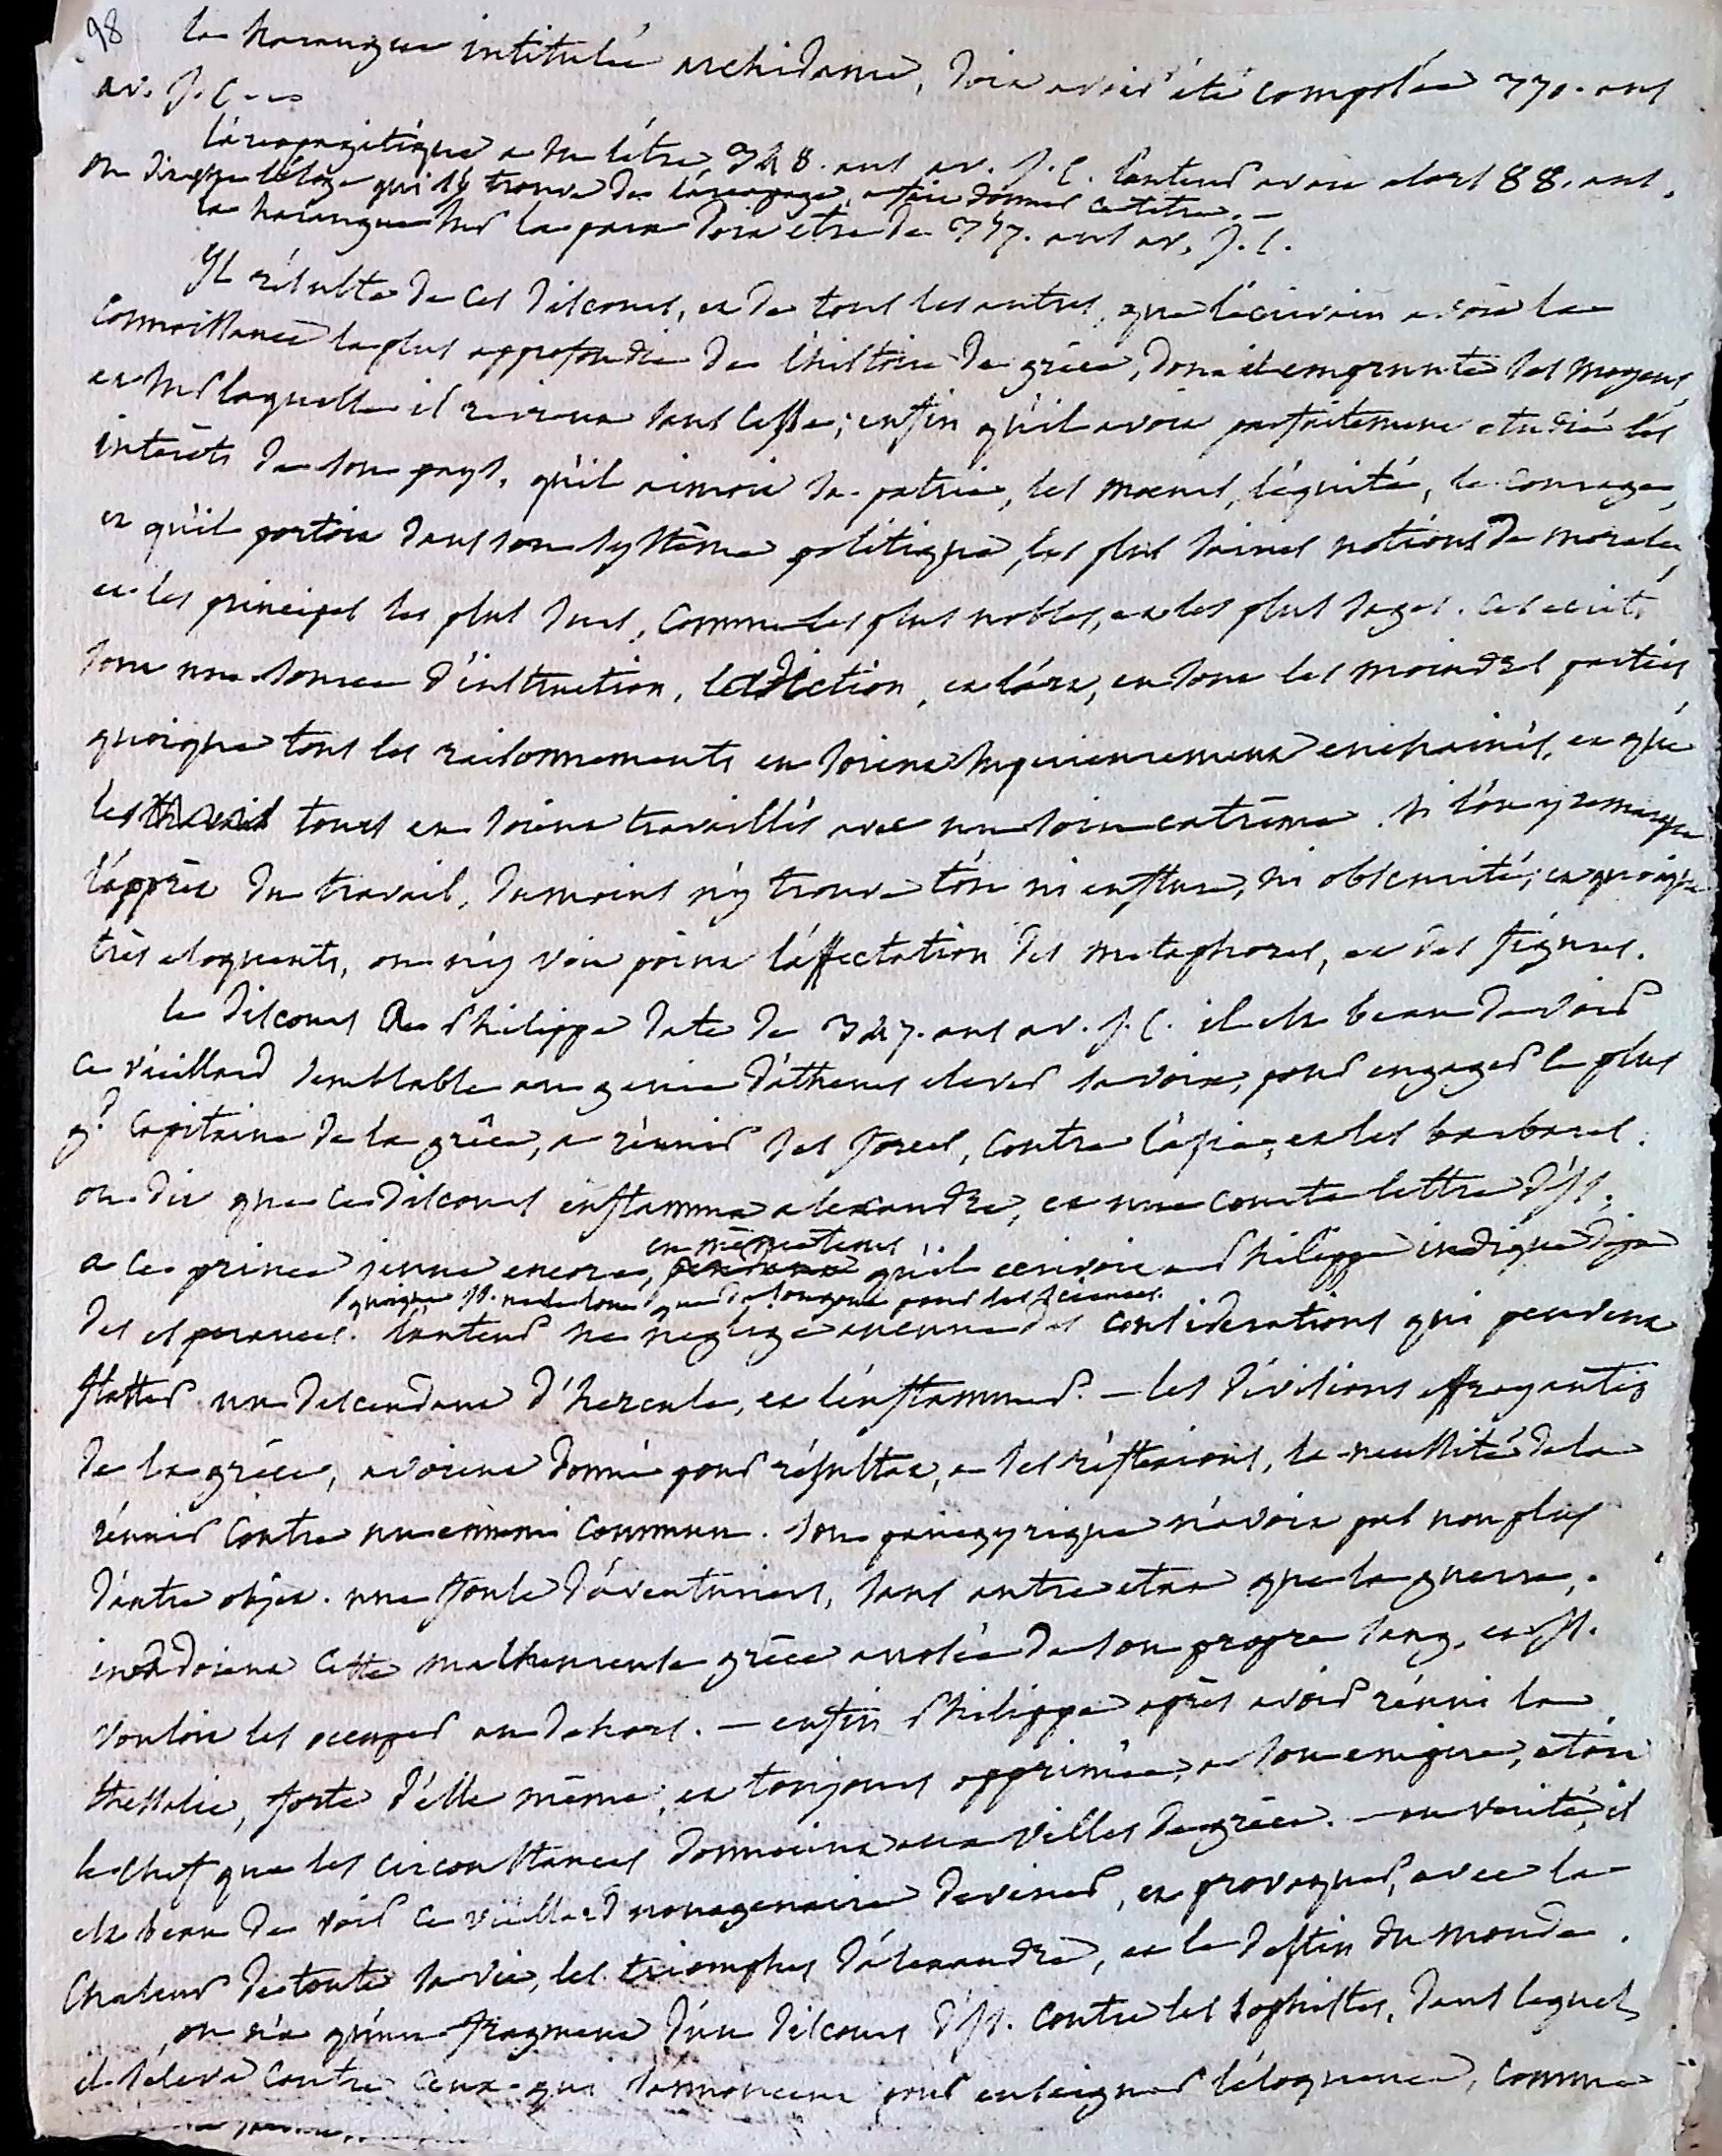 98 la harangue intitulée archidame, doit avoir été composée 370. ans
av. J. C.
l'aréopagitique a du l'être, 348. ans av. J. C. l'auteur avoit alors 88. ans.
on dit que l'éloge qui s'y trouve de l'aréopage, a fait donner ce titre. –
la harangue sur la paix doit etre de 357. ans av. J. C.
Il résulte de ces discours, et de tous les autres, que l'écrivain avoit la
connoissance la plus approfondie de l'histoire de grèce, dont il emprunte ses moyens,
et sur laquelle il revient sans cesse; enfin qu'il avoit parfaitement étudié les
intérêts de son pays, qu'il aimoit sa patrie, les moeurs, l'équité, le courage,
et qu'il portoit dans son système politique, les plus saines notions de morale,
et les principes les plus surs, comme les plus nobles, et les plus sages. ces ecrits
sont une source d'instruction, la diction, et l'art, en sont les moindres parties
quoique tous les raisonnements en soient supérieurement enchainés, et que
les tours en soient travaillés avec un soin extrême. si l'on y remarque
l'apprêt du travail, du moins n'y trouve t'on ni enflure, ni obscurité; et quoique
très eloquents, on n'y voit point l'affectation des metaphores, et des figures.
le discours a Philippe date de 347. ans av. J. C. il est beau de voir
ce vieillard semblable au genie d'athenes elever sa voix, pour engager le plus
gd capitaine de la grèce, a réunir ses forces, contre l'asie, et les barbares.
on dit que ce discours enflamma alexandre, et une courte lettre d'Is.
a ce prince jeune encore, en même tems qu'il ecrivoit a Philippe indique deja
quoique Is. ne le loue que de son gout pour les sciences.
des esperances. l'auteur ne neglige aucune des considerations qui peuvent
flatter un descendant d'hercule, et l'enflammer. – les divisions effrayantes
de la grèce, avoient donné pour résultat, a ses réflexions, la necessité de la
réunir contre un ennemi commun. son panegyrique n'avoit pas non plus
d'autre objet. une foule d'aventuriers, sans autre etat que la guerre,
inondoient cette malheureuse grèce arrosée de son propre sang, et Is.
vouloit les occuper au dehors. – enfin Philippe après avoir réuni la
thessalie, forte d'elle même, et toujours opprimée, a son empire, etoit
le chef que les circonstances donnoient aux villes de grèce. – en verité, il
est beau de voir ce vieillard nonagenaire deviner, et provoquer, avec la
chaleur de toute sa vie, les triomphes d'alexandre, et le destin du monde.
on n'a qu'un fragment d'un discours d'Is. contre les sophistes, dans lequel
il s'eleve contre ceux qui s'annoncent pour enseigner l'éloquence, comme